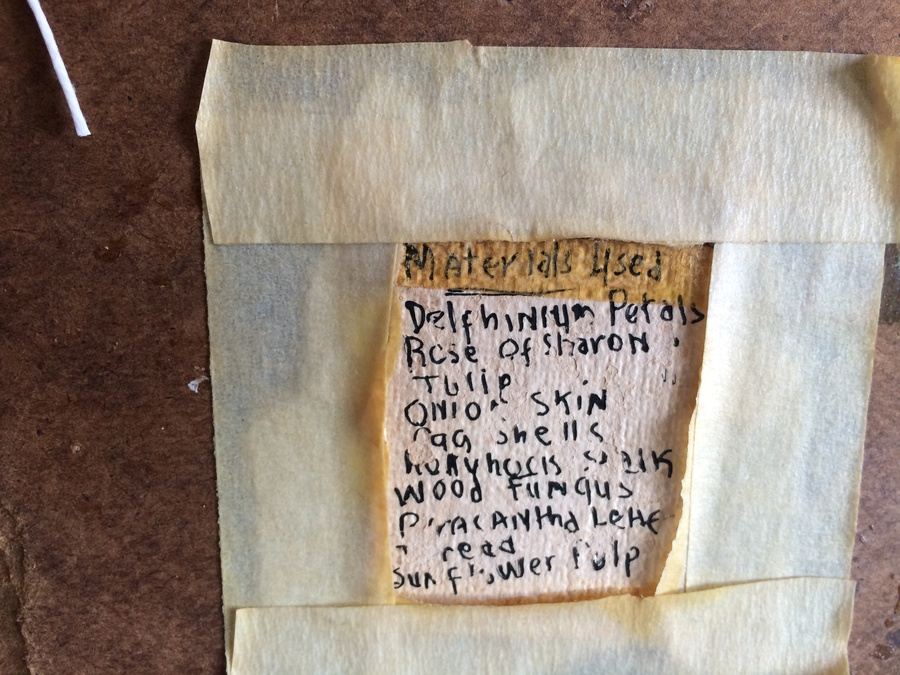 Materials Used
Delphinium Petals
Rose Of Sharon
Tulip
Onion Skin
Egg Shells
Hollyhock Stalk
Wood Fungus
Pyracantha
read
Sunflower Pulp